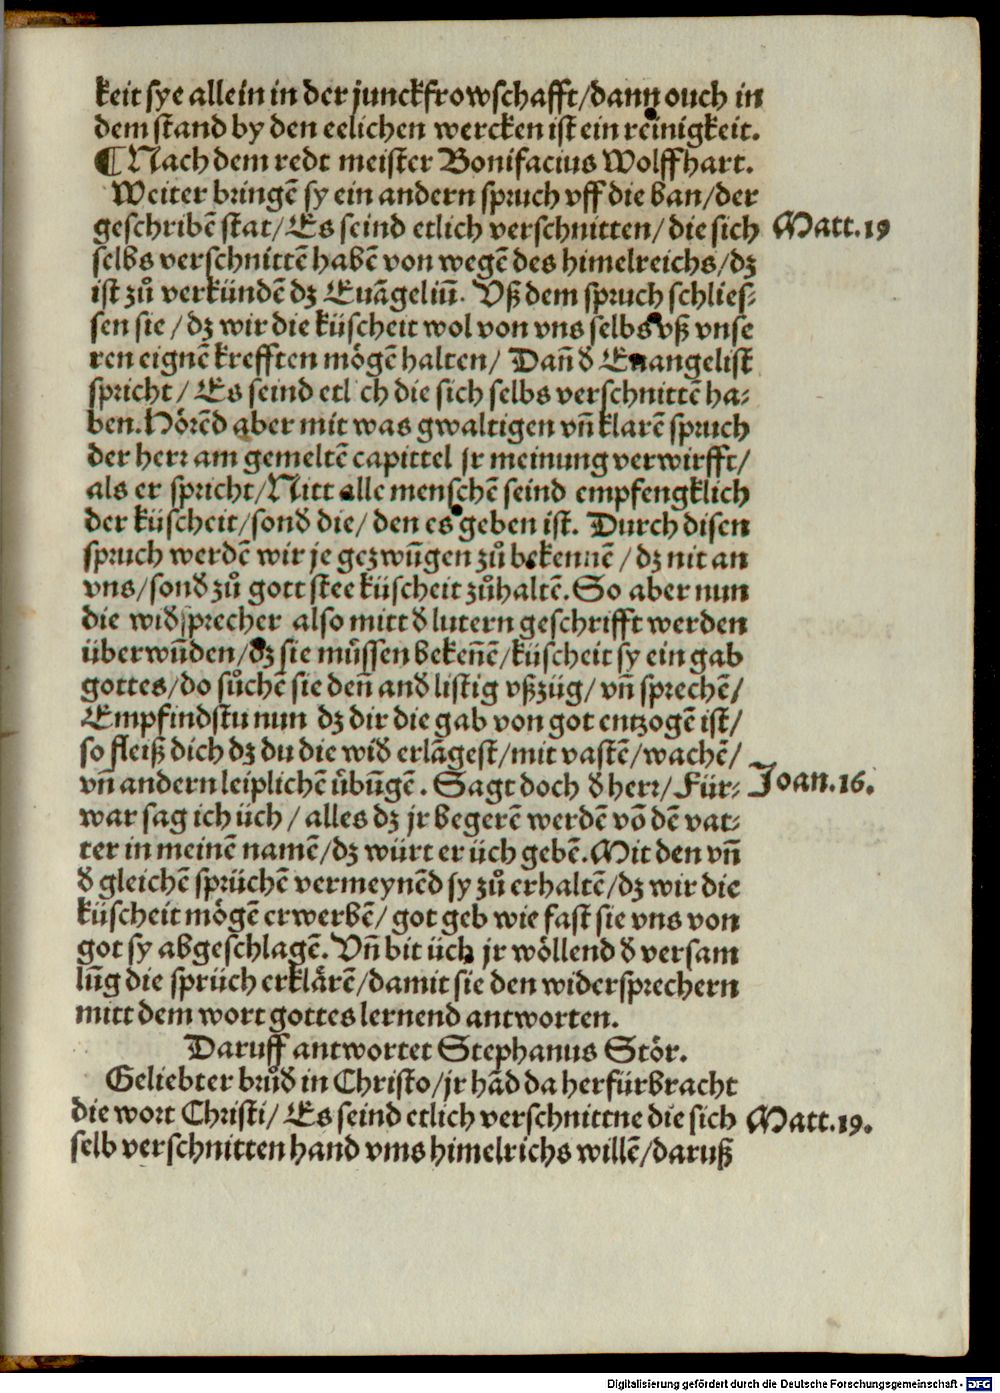 keit sye allein in der junckfrowschafft/dann ouch in
dem stand by den eelichen wercken ist ein reinigkeit.
¶ Nach dem redt meister Bonifacius Wolffhart.
Weiter bringē sy ein andern spruch vff die ban/der
geschribē stat/Es seind etlich verschnitten/die sich
Matt.19
selbs verschnittē habē von wegē des himelreichs/dz
ist zů verkündē dz Euāgeliū. Vß dem spruch schlies-
sen sie/dz wir die küscheit wol von vns selbs vß vnse
ren eignē krefften mögē halten/ Dañ d̄ Euangelist
spricht/ Es seind etl ch die sich selbs verschnittē ha-
ben. Hörēd aber mit was gwaltigen vñ klarē spruch
der herr am gemeltē capittel jr meinung verwirfft/
als er spricht/Nitt alle menschē seind empfengklich
der küscheit/sond̄ die/ den es geben ist. Durch disen
spruch werdē wir je gezwūgen zů bekennē/dz nit an
vns/sond̄ zů gott stee küscheit zůhaltē. So aber nun
die wid̄sprecher also mitt d̄ lutern geschrifft werden
überwūden/dz sie müssen bekeñē/küscheit sy ein gab
gottes/do sůchē sie deñ and̄ listig vßzüg/ vñ sprechē/
Empfindstu nun dz dir die gab von got entzogē ist/
so fleiß dich dz du die wid̄ erlāgest/mit vastē/wachē/
vñ andern leiplichē übūgē. Sagt doch d̄ herr/Für-
Joan.16.
war sag ich üch/ alles dz jr begerē werdē vō dē vat-
ter in meinē namē/dz würt er üch gebē. Mit den vñ
d̄ gleichē sprüchē vermeynēd sy zů erhaltē/dz wir die
küscheit mögē erwerbē/ got geb wie fast sie vns von
got sy abgeschlagē. Vñ bit üch jr wöllend d̄ versam
lūg die sprüch erklärē/damit sie den widersprechern
mitt dem wort gottes lernend antworten.
Daruff antwortet Stephanus Stör.
Geliebter brůd̄ in Christo/jr hād da herfürbracht
die wort Christi/ Es seind etlich verschnittne die sich
Matt.19.
selb verschnitten hand vms himelrichs willē/daruß
Digitalisierung gefördert durch die Deutsche Forschungsgemeinschaft - DFG